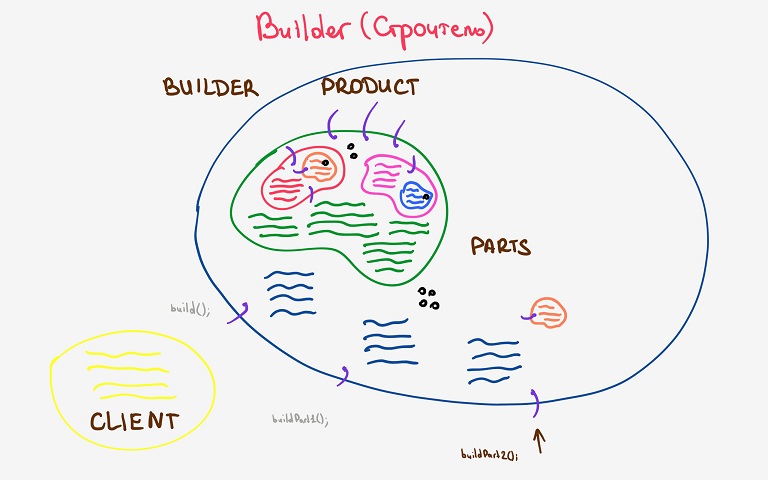 Builder (Строитель)
BUILDER PRODUCT
PARTS
build();
CLIENT
buildPart1();
buildPart2();